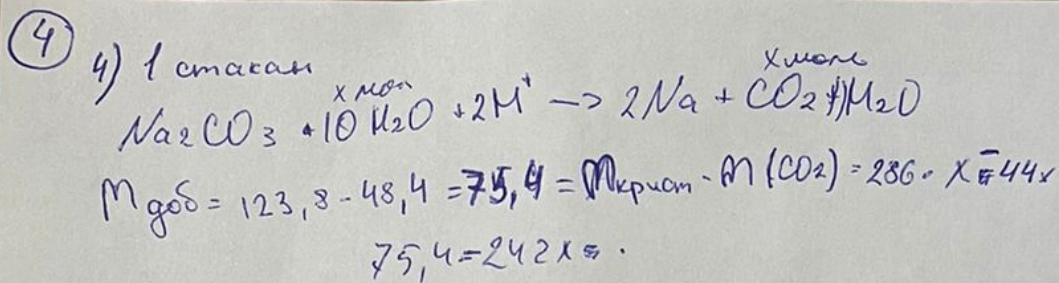 4
4) 1 стакан
x мол
x моль
Na2CO3 • 10 H2O + 2H⁺ → 2Na + CO2 + 11H2O
mдоб = 123,8 - 48,4 = 75,4 = mкрист - m(CO2) = 286 · x - 44x
75,4 = 242x = .